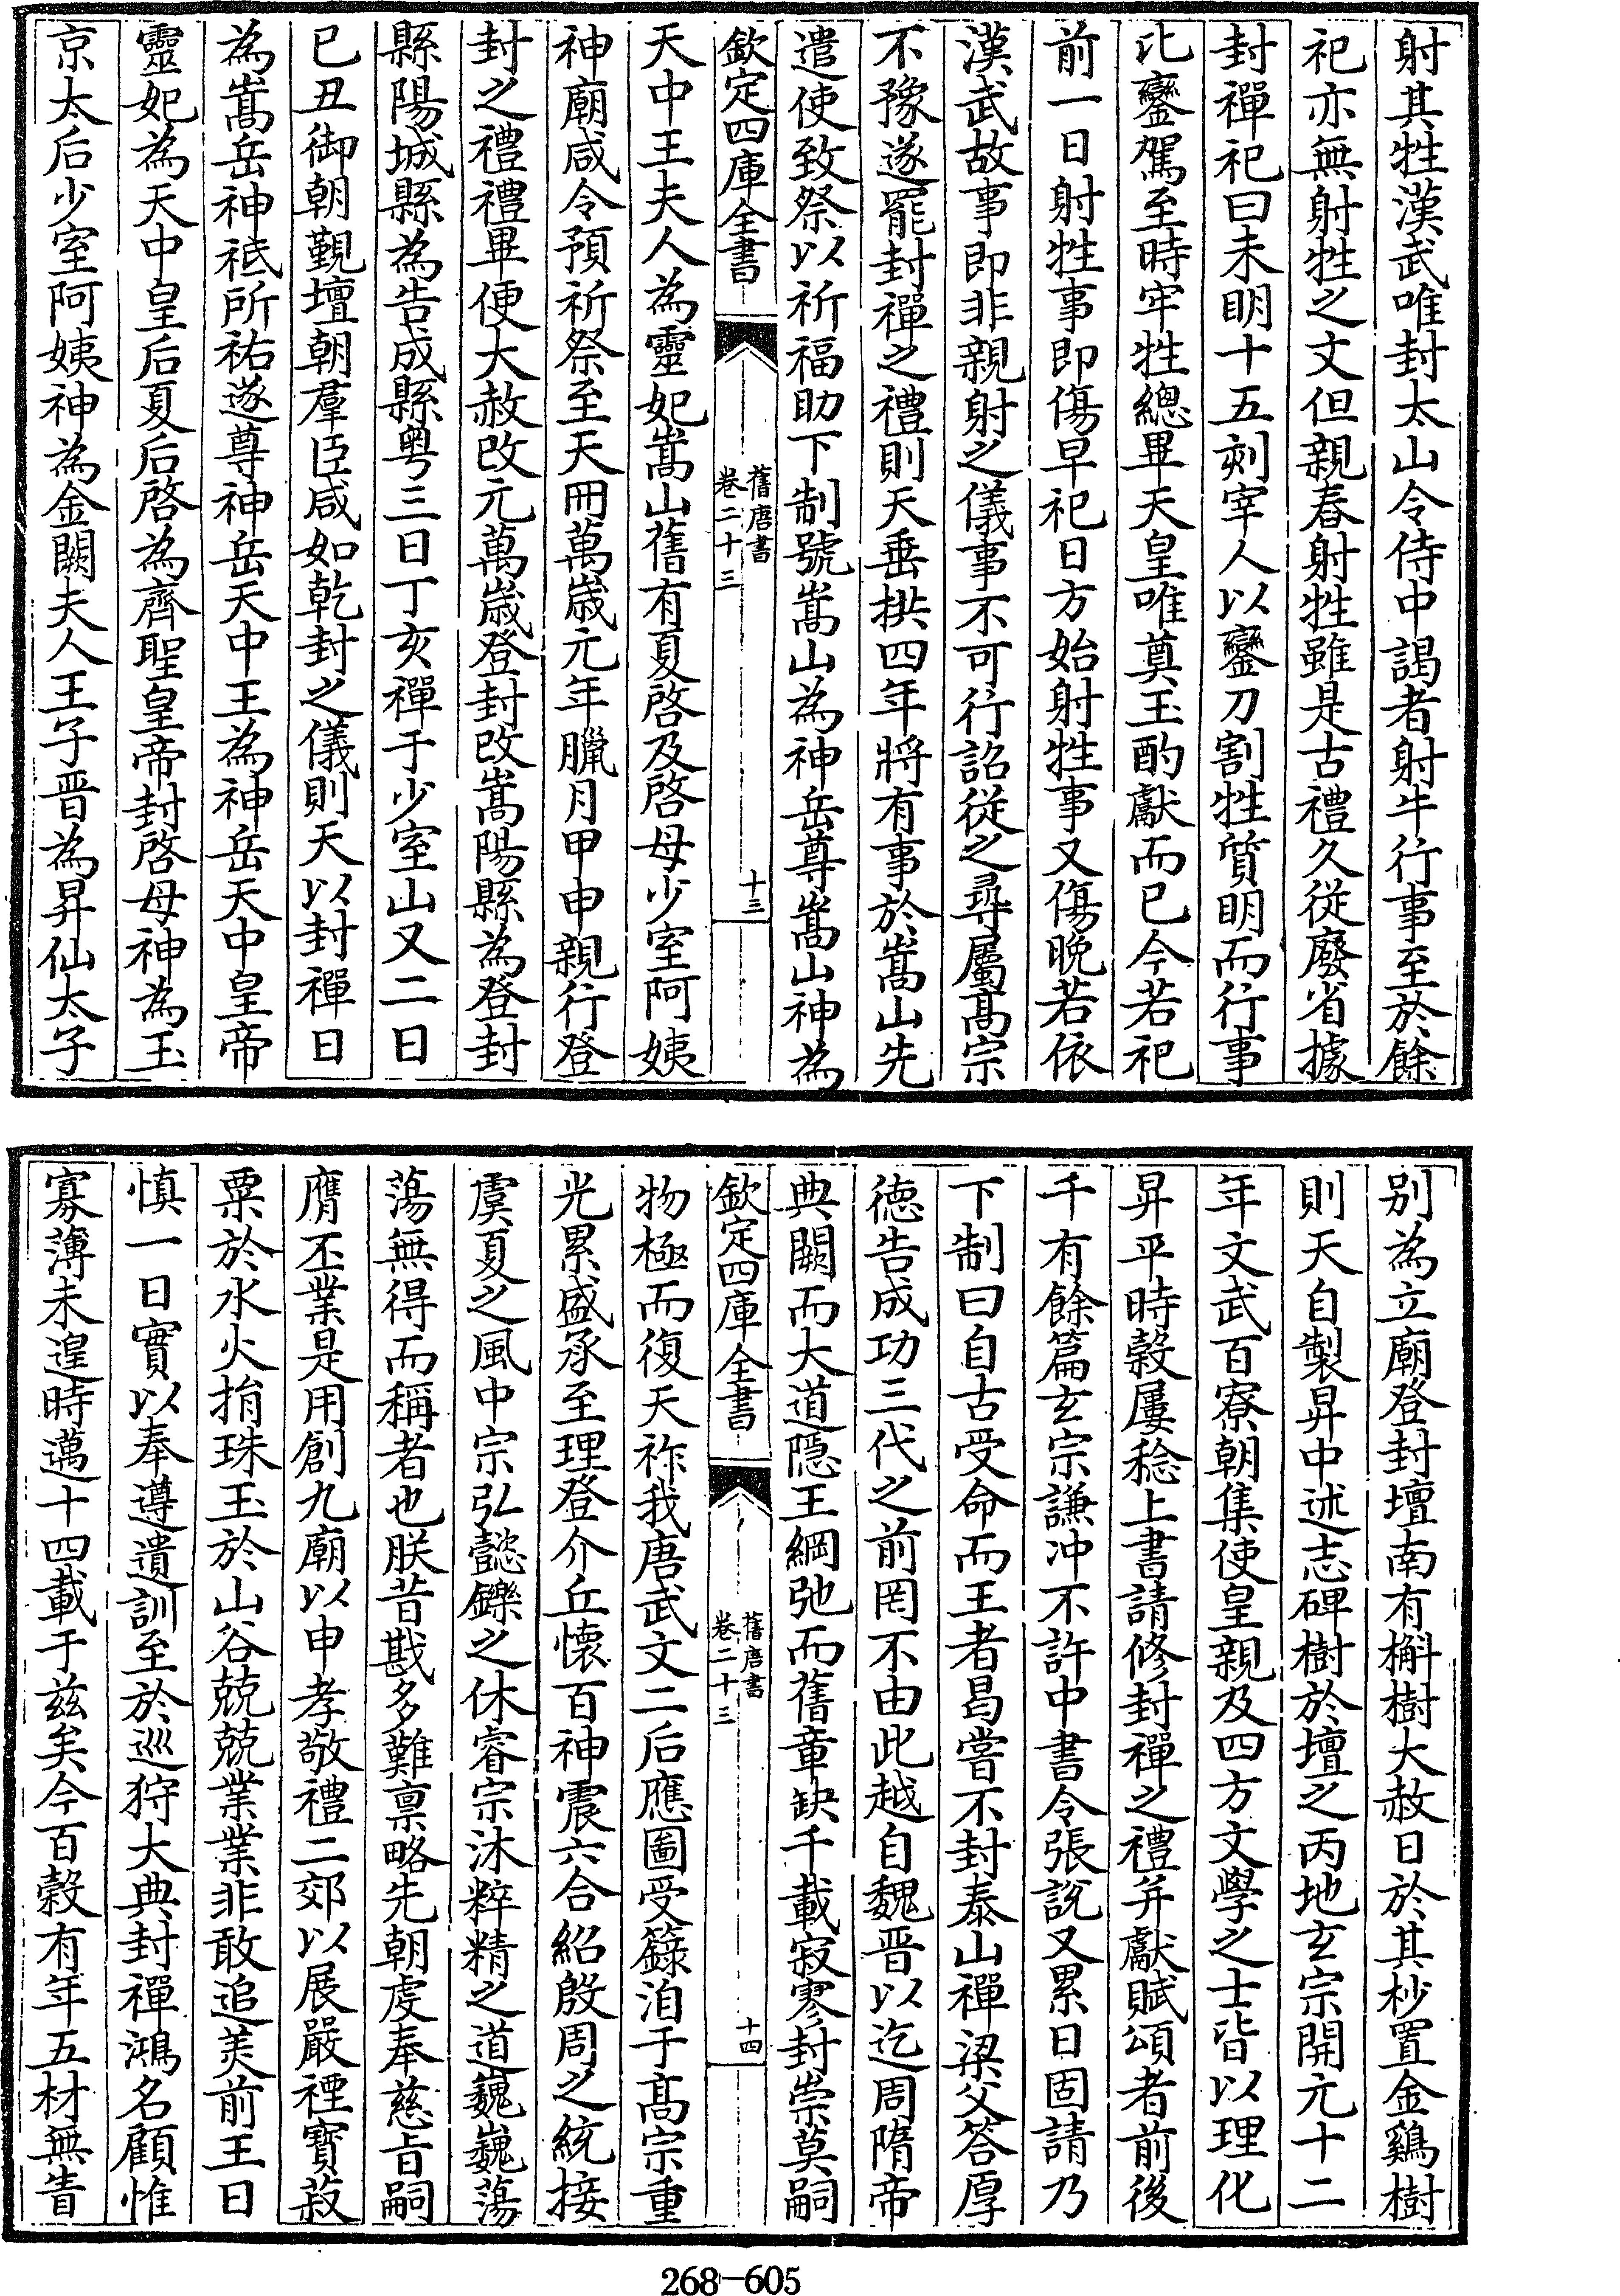 射其牲漢武唯封太山令侍中謁者射牛行事至於餘
祀亦無射牲之文但親舂射牲雖是古禮久從廢省據
封禪祀曰未明十五刻宰人以鑾刀割牲質明而行事
比鑾駕至時牢牲總畢天皇唯奠玉酌獻而已今若祀
前一日射牲事即傷早祀日方始射牲事又傷晚若依
漢武故事即非親射之儀事不可行詔從之尋屬高宗
不豫遂罷封禪之禮則天垂拱四年將有事於嵩山先
遣使致祭以祈福助下制號嵩山為神岳尊嵩山神為
欽定四庫全書
舊唐書
卷二十三
十三
天中王夫人為靈妃嵩山舊有夏啓及啓母少室阿姨
神廟咸令預祈祭至天冊萬歲元年臘月甲申親行登
封之禮禮畢便大赦改元萬歲登封改嵩陽縣為登封
縣陽城縣為告成縣粤三日丁亥禪于少室山又二日
已丑御朝覲壇朝羣臣咸如乾封之儀則天以封禪日
為嵩岳神祗所祐遂尊神岳天中王為神岳天中皇帝
靈妃為天中皇后夏后啓為齊聖皇帝封啓母神為玉
京太后少室阿姨神為金闕夫人王子晋為昇仙太子
别為立廟登封壇南有槲樹大赦日於其杪置金鷄樹
則天自製昇中述志碑樹於壇之丙地玄宗開元十二
年文武百寮朝集使皇親及四方文學之士皆以理化
昇平時榖屢稔上書請修封禪之禮并獻賦頌者前後
千有餘篇玄宗謙冲不許中書令張說又累日固請乃
下制曰自古受命而王者曷嘗不封泰山禪梁父答厚
德告成功三代之前罔不由此越自魏晋以迄周隋帝
典闕而大道隱王綱弛而舊章缺千載寂寥封崇莫嗣
欽定四庫全書
舊唐書
卷二十三
十四
物極而復天祚我唐武文二后應圖受籙洎于高宗重
光累盛承至理登介丘懷百神震六合紹殷周之統接
虞夏之風中宗弘懿鑠之休睿宗沐粹精之道巍巍蕩
蕩無得而稱者也朕昔戡多難稟略先朝虔奉慈旨嗣
膺丕業是用創九廟以申孝敬禮二郊以展嚴禋寳菽
粟於水火捐珠玉於山谷兢兢業業非敢追美前王日
慎一日實以奉遵遺訓至於巡狩大典封禪鴻名顧惟
寡薄未遑時邁十四載于兹矣今百榖有年五材無眚
268-605